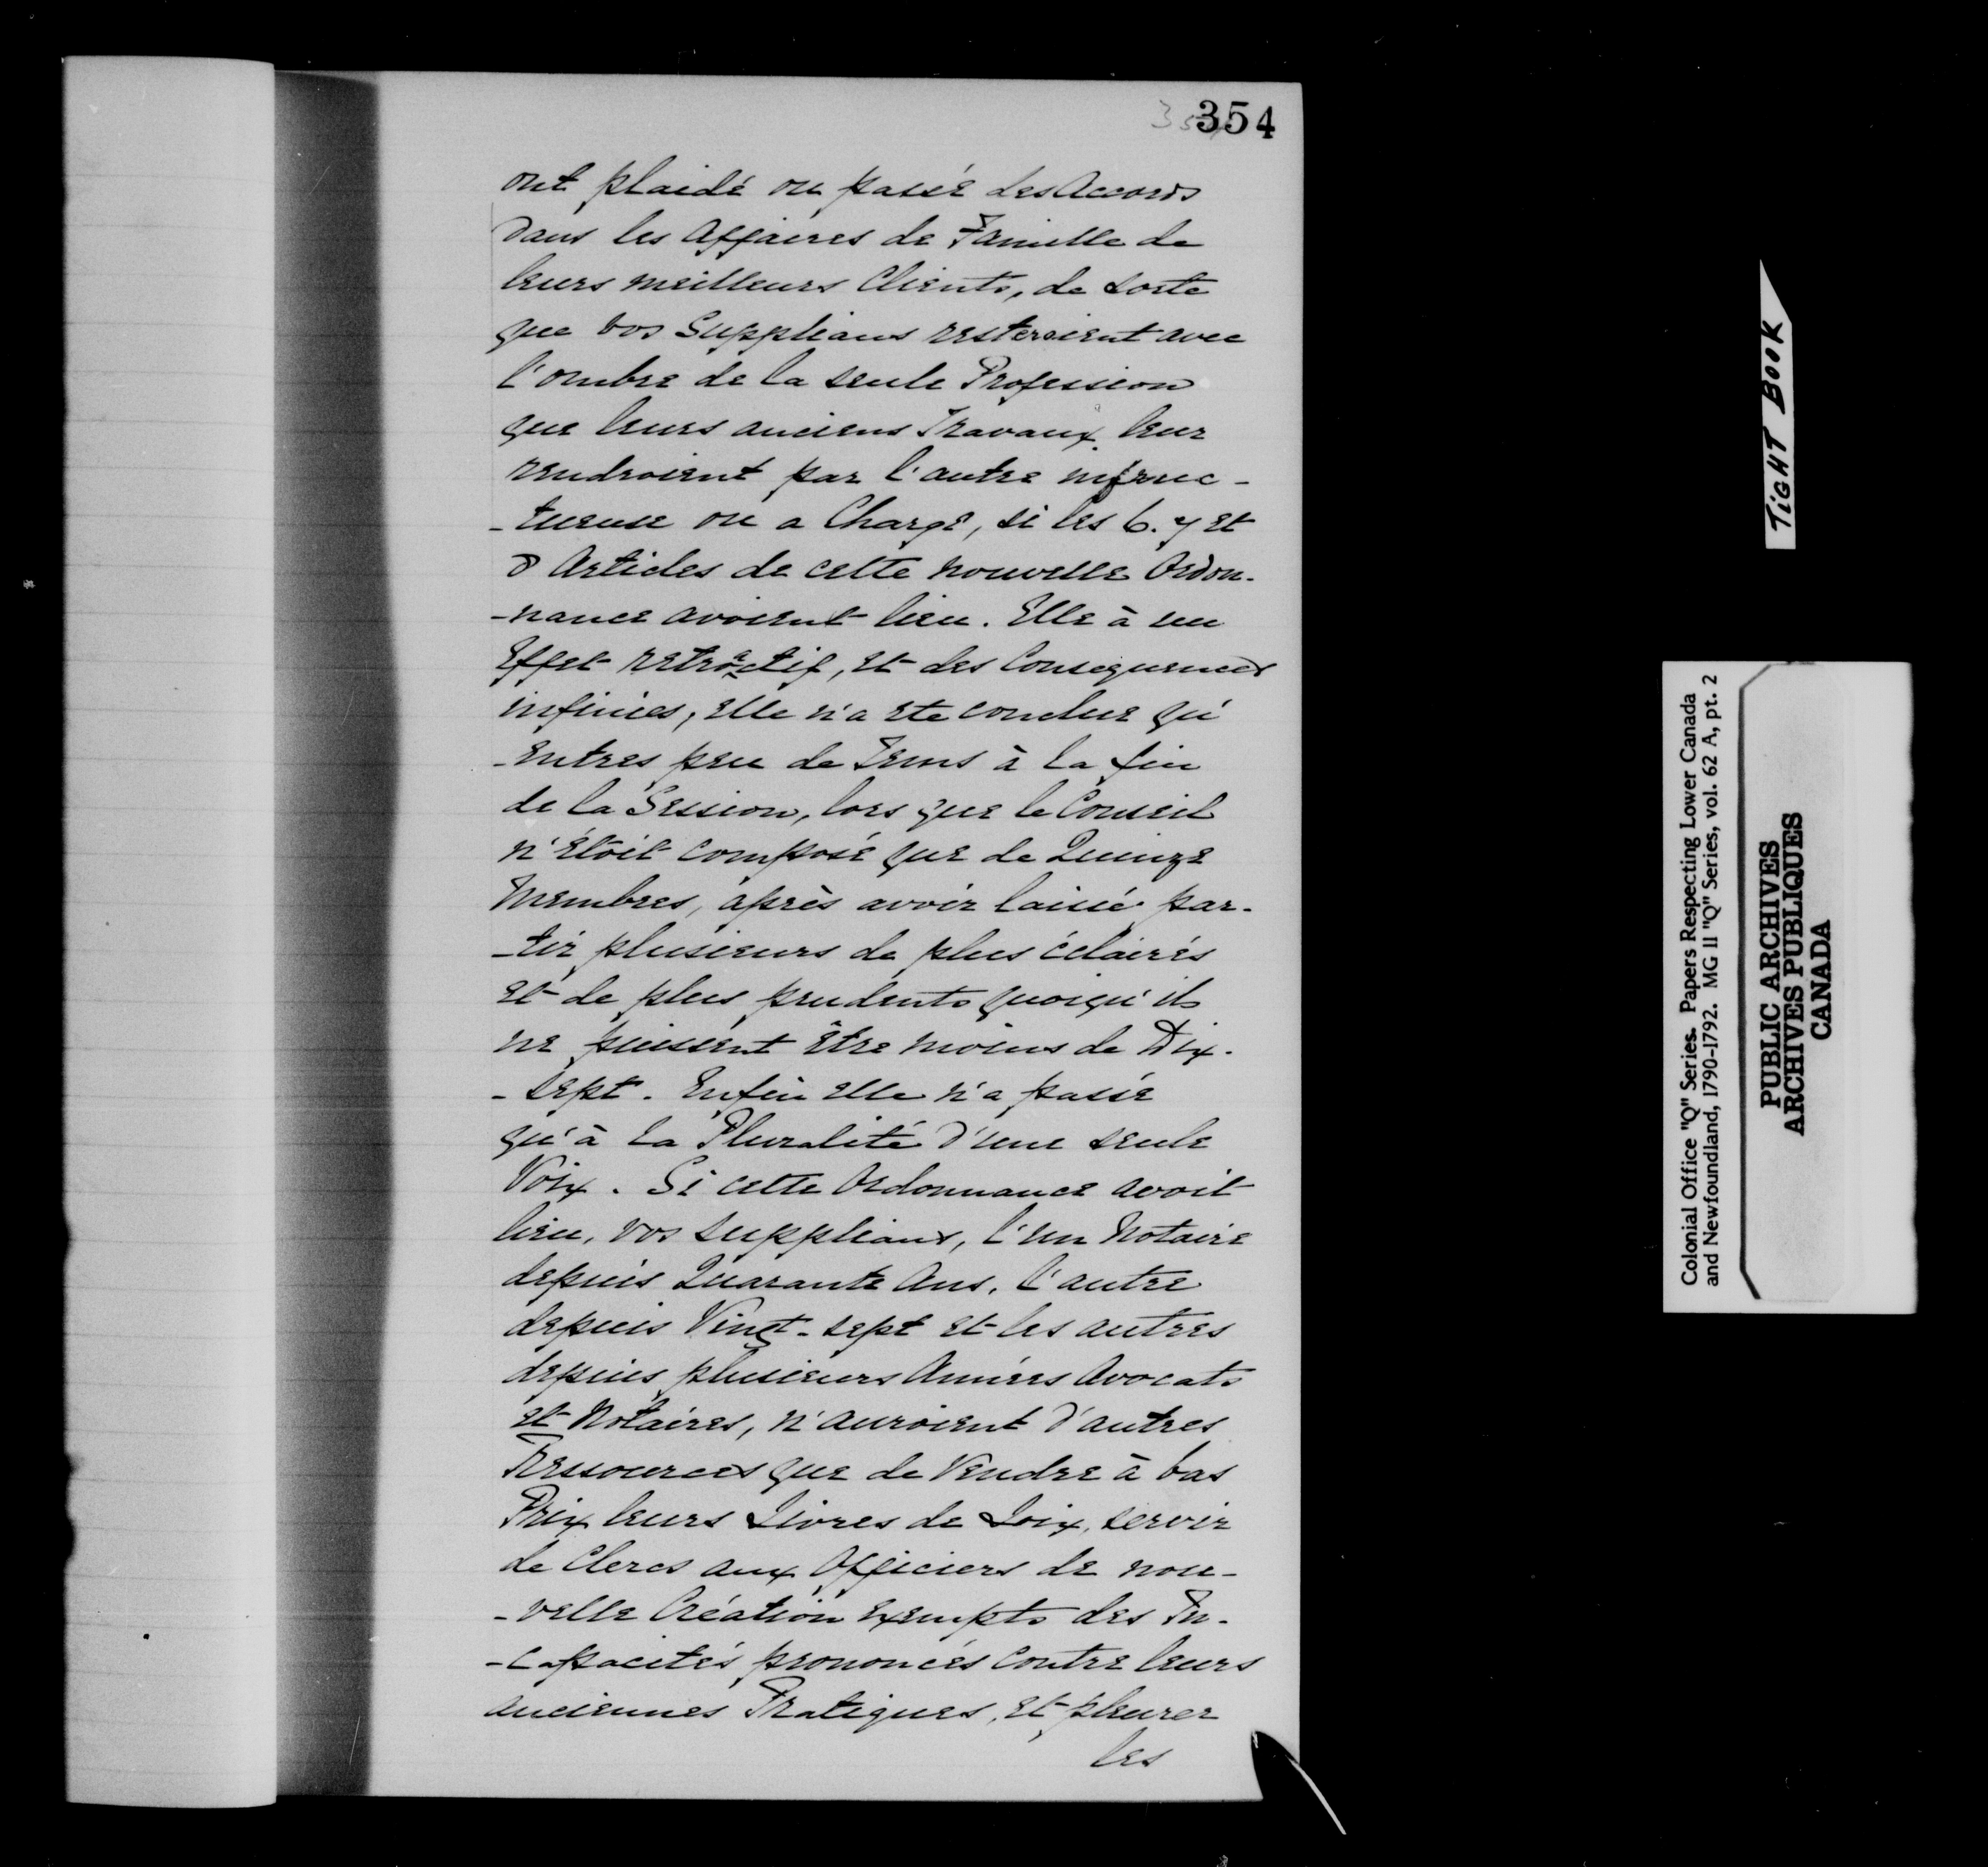 354
354
ont plaidé ou passé des Accords
dans les Affaires de Famille de
leurs meilleurs Clients, de sorte
que vos Supplians resteroient avec
l'ombre de la seule Profession
que leurs anciens Travaux leur
rendroient par l'autre infruc-
-tueuse ou a Charge, si les 6. 7 et
8 Articles de cette nouvelle Ordon-
-nance avoient lieu. Elle à un
Effet retroactif, et des Consequences
infinies, elle n'a ete conclue qu'
-entres peu de Tems à la fin
de la Session, lors que le Conseil
n'étoit composé que de Quinze
Membres, après avoir laissé par-
-tir plusieurs de plus éclairés
et de plus prudents quoiqu'ils
ne puissent être moins de Dix-
-sept. Enfin elle n'a passée
qu'à la Pluralité d'une seule
Voix. Si cette Ordonnance avoit
lieu, vos supplians, l'un Notaire
depuis Quarante Ans, l'autre
depuis Vingt-sept et les autres
depuis plusieurs Années Avocats
et Notaires, n'auroient d'autres
Ressources que de Vendre à bas
Prix leurs Livres de Loix, servir
de Clercs aux Officiers de nou-
-velle Création exempts des In-
-capacités prononcés contre leurs
anciennes Pratiques, et pleurer
les
TIGHT BOOK
Colonial Office "Q" Series. Papers Respecting Lower Canada
and Newfoundland, 1790-1792. MG 11 "Q" Series, vol. 62 A, pt. 2
PUBLIC ARCHIVES
ARCHIVES PUBLIQUES
CANADA